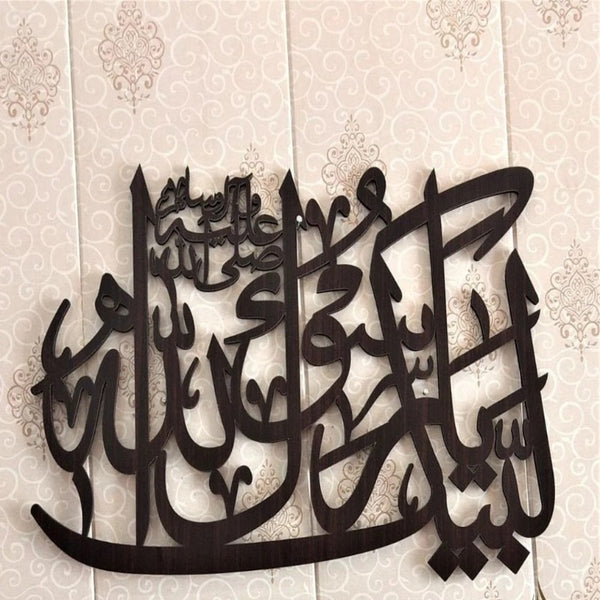 لبيك يا رسول الله
صلى الله عليه وآله وسلم